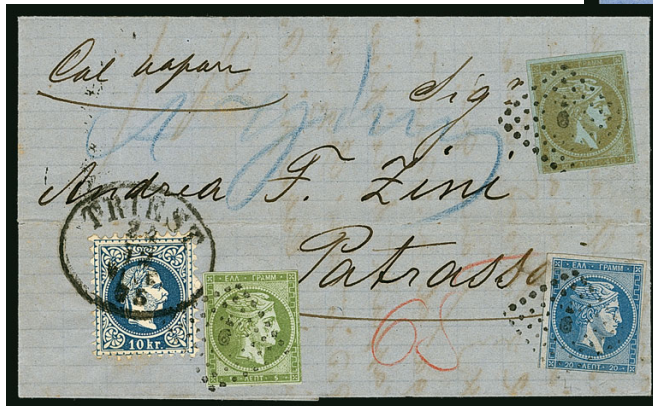 Col vapore
Sigr
Andrea F. Zini
Patrasso
TRIEST
10 kr.
ΕΛΛ ΓΡΑΜΜ
5 ΛΕΠΤ 5
68
ΕΛΛ ΓΡΑΜΜ
20 ΛΕΠΤ 20